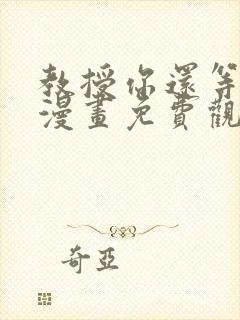 教授你還等
漫畫免費觀
奇亞